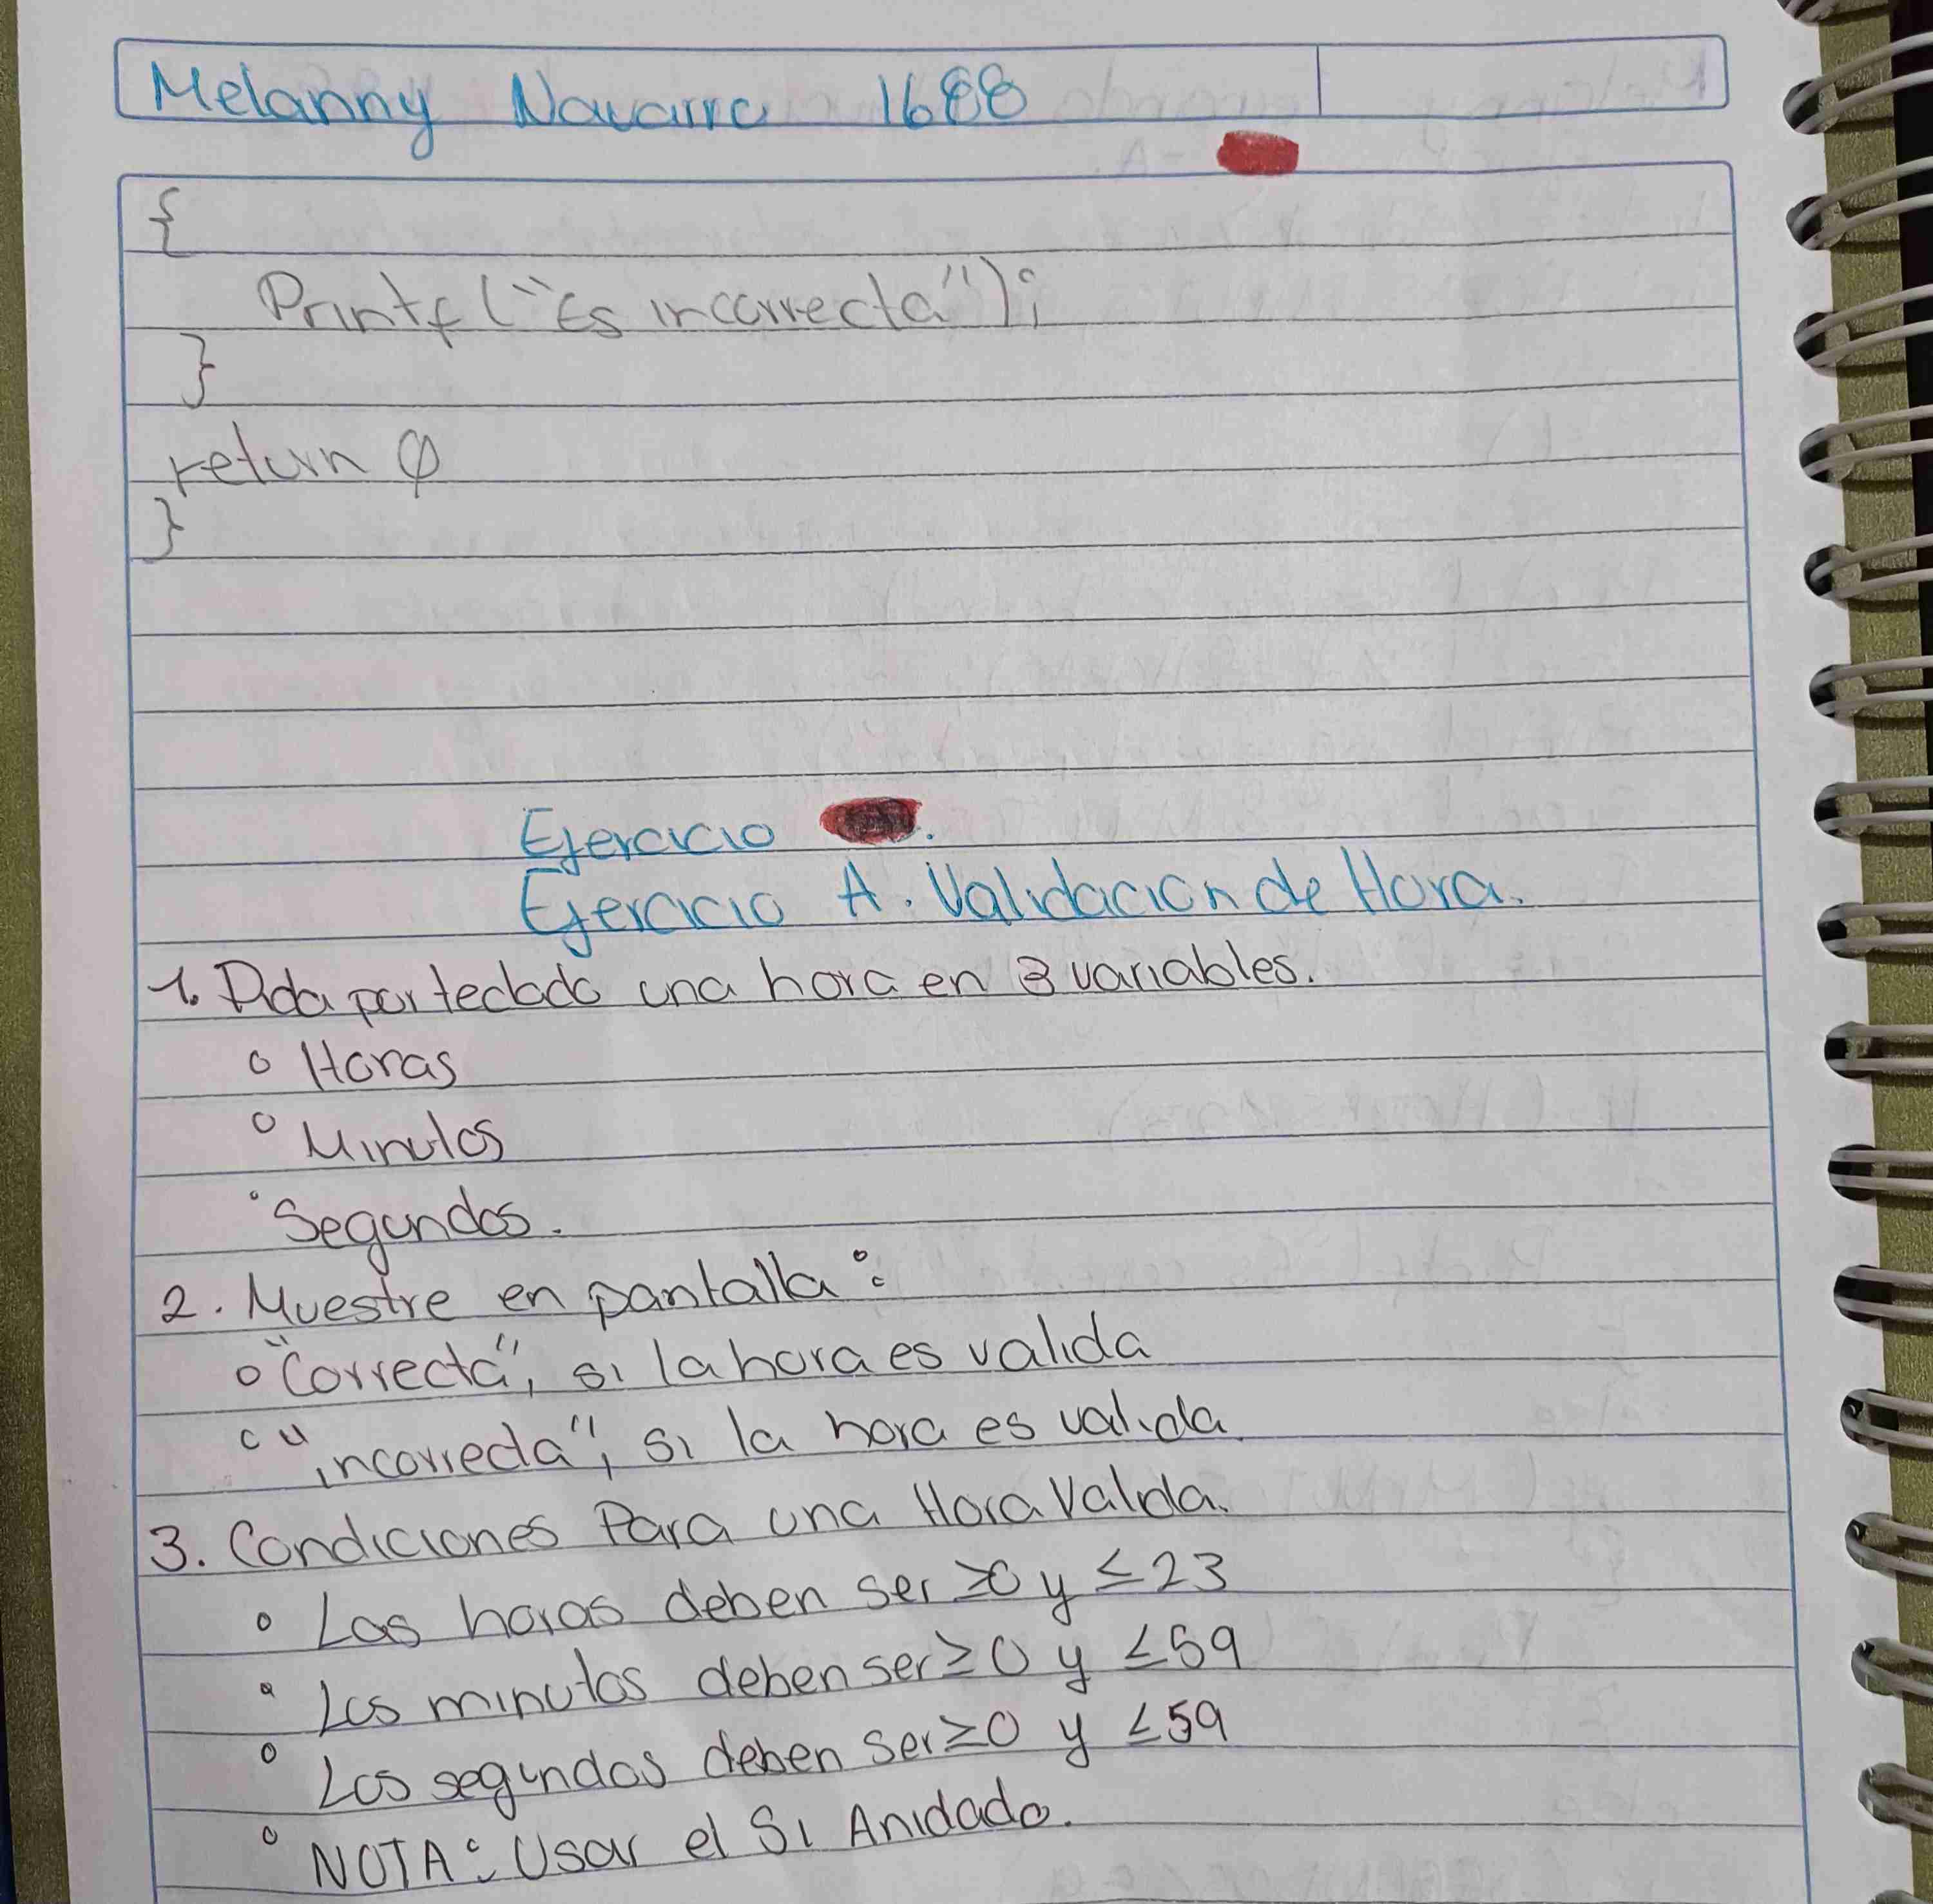 Melanny Navarro 1688
{
Printf("Es incorrecta");
}
return 0
}
Ejercicio
Ejercicio A. Validacion de Hora.
1. Pida por teclado una hora en 3 variables.
o Horas
o Minutos
o Segundos.
2. Muestre en pantalla:
o "Correcta", si la hora es valida
o "incorrecta", si la hora es valida
3. Condiciones Para una Hora Valida.
o Las horas deben ser ≥0 y ≤23
o Los minutos deben ser ≥0 y ≤59
o Los segundos deben ser ≥0 y ≤59
o NOTA: Usar el Si Anidado.